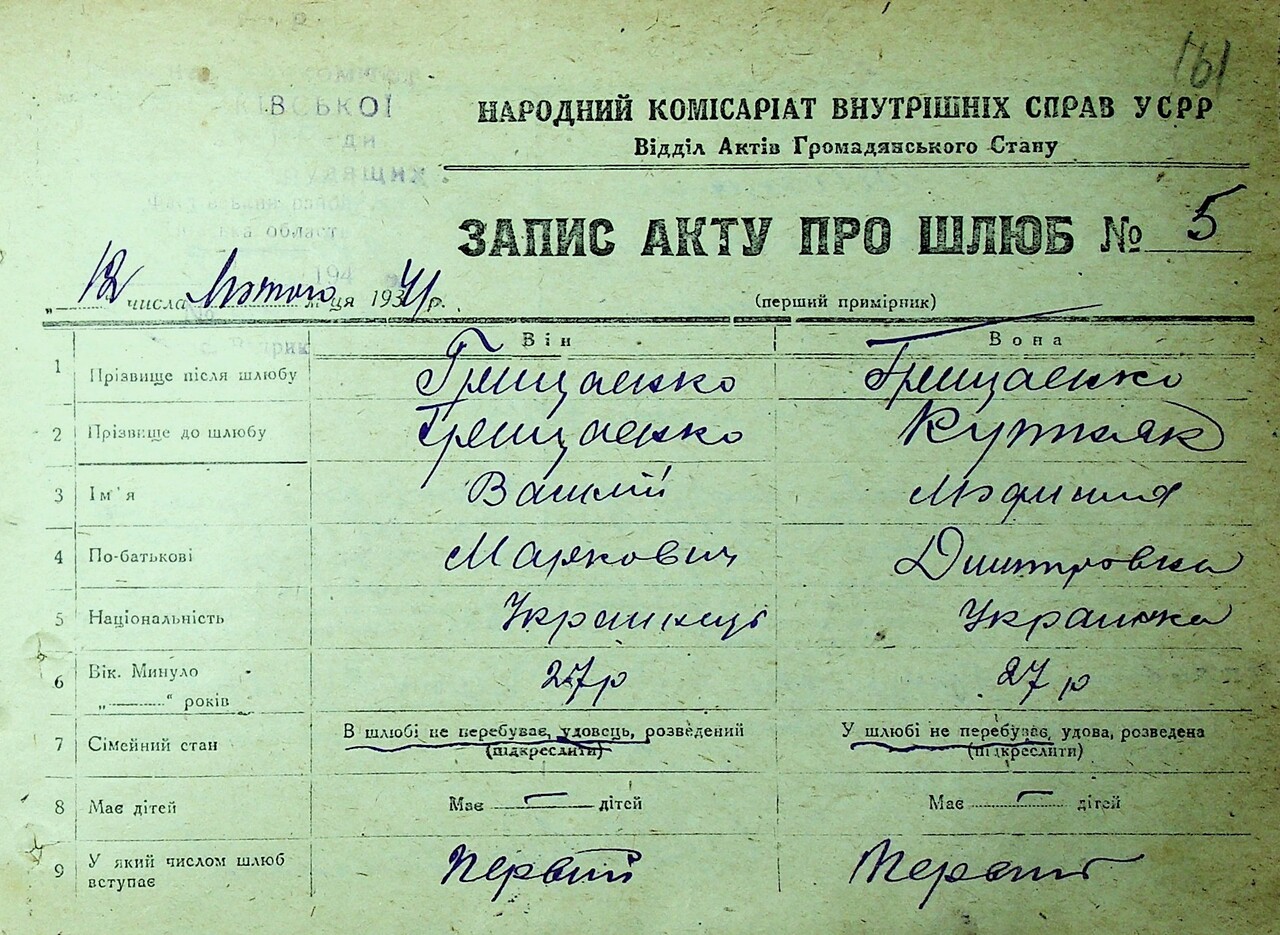 161
ІВСЬКОЇ
НАРОДНИЙ КОМІСАРІАТ ВНУТРІШНІХ СПРАВ УСРР
Відділ Актів Громадянського Стану
ЗАПИС АКТУ ПРО ШЛЮБ № 5
„ 12 числа Лютого м-ця 1941 р.
(перший примірник)
Він Вона
1 Прізвище після шлюбу Грищаенко Грищаенко
2 Прізвище до шлюбу Грищаенко Куртяк
3 Ім'я Василій
4 По-батькові Маркович Дмитровна
5 Національність Украинець Украинка
6 Вік. Минуло 27 р 27 р
„ “ років
7 Сімейний стан В шлюбі не перебуває, удовець, розведений У шлюбі не перебуває, удова, розведена
(підкреслити) (підкреслити)
8 Має дітей Має — дітей Має — дітей
9 У який числом шлюб Первий Первий
вступає